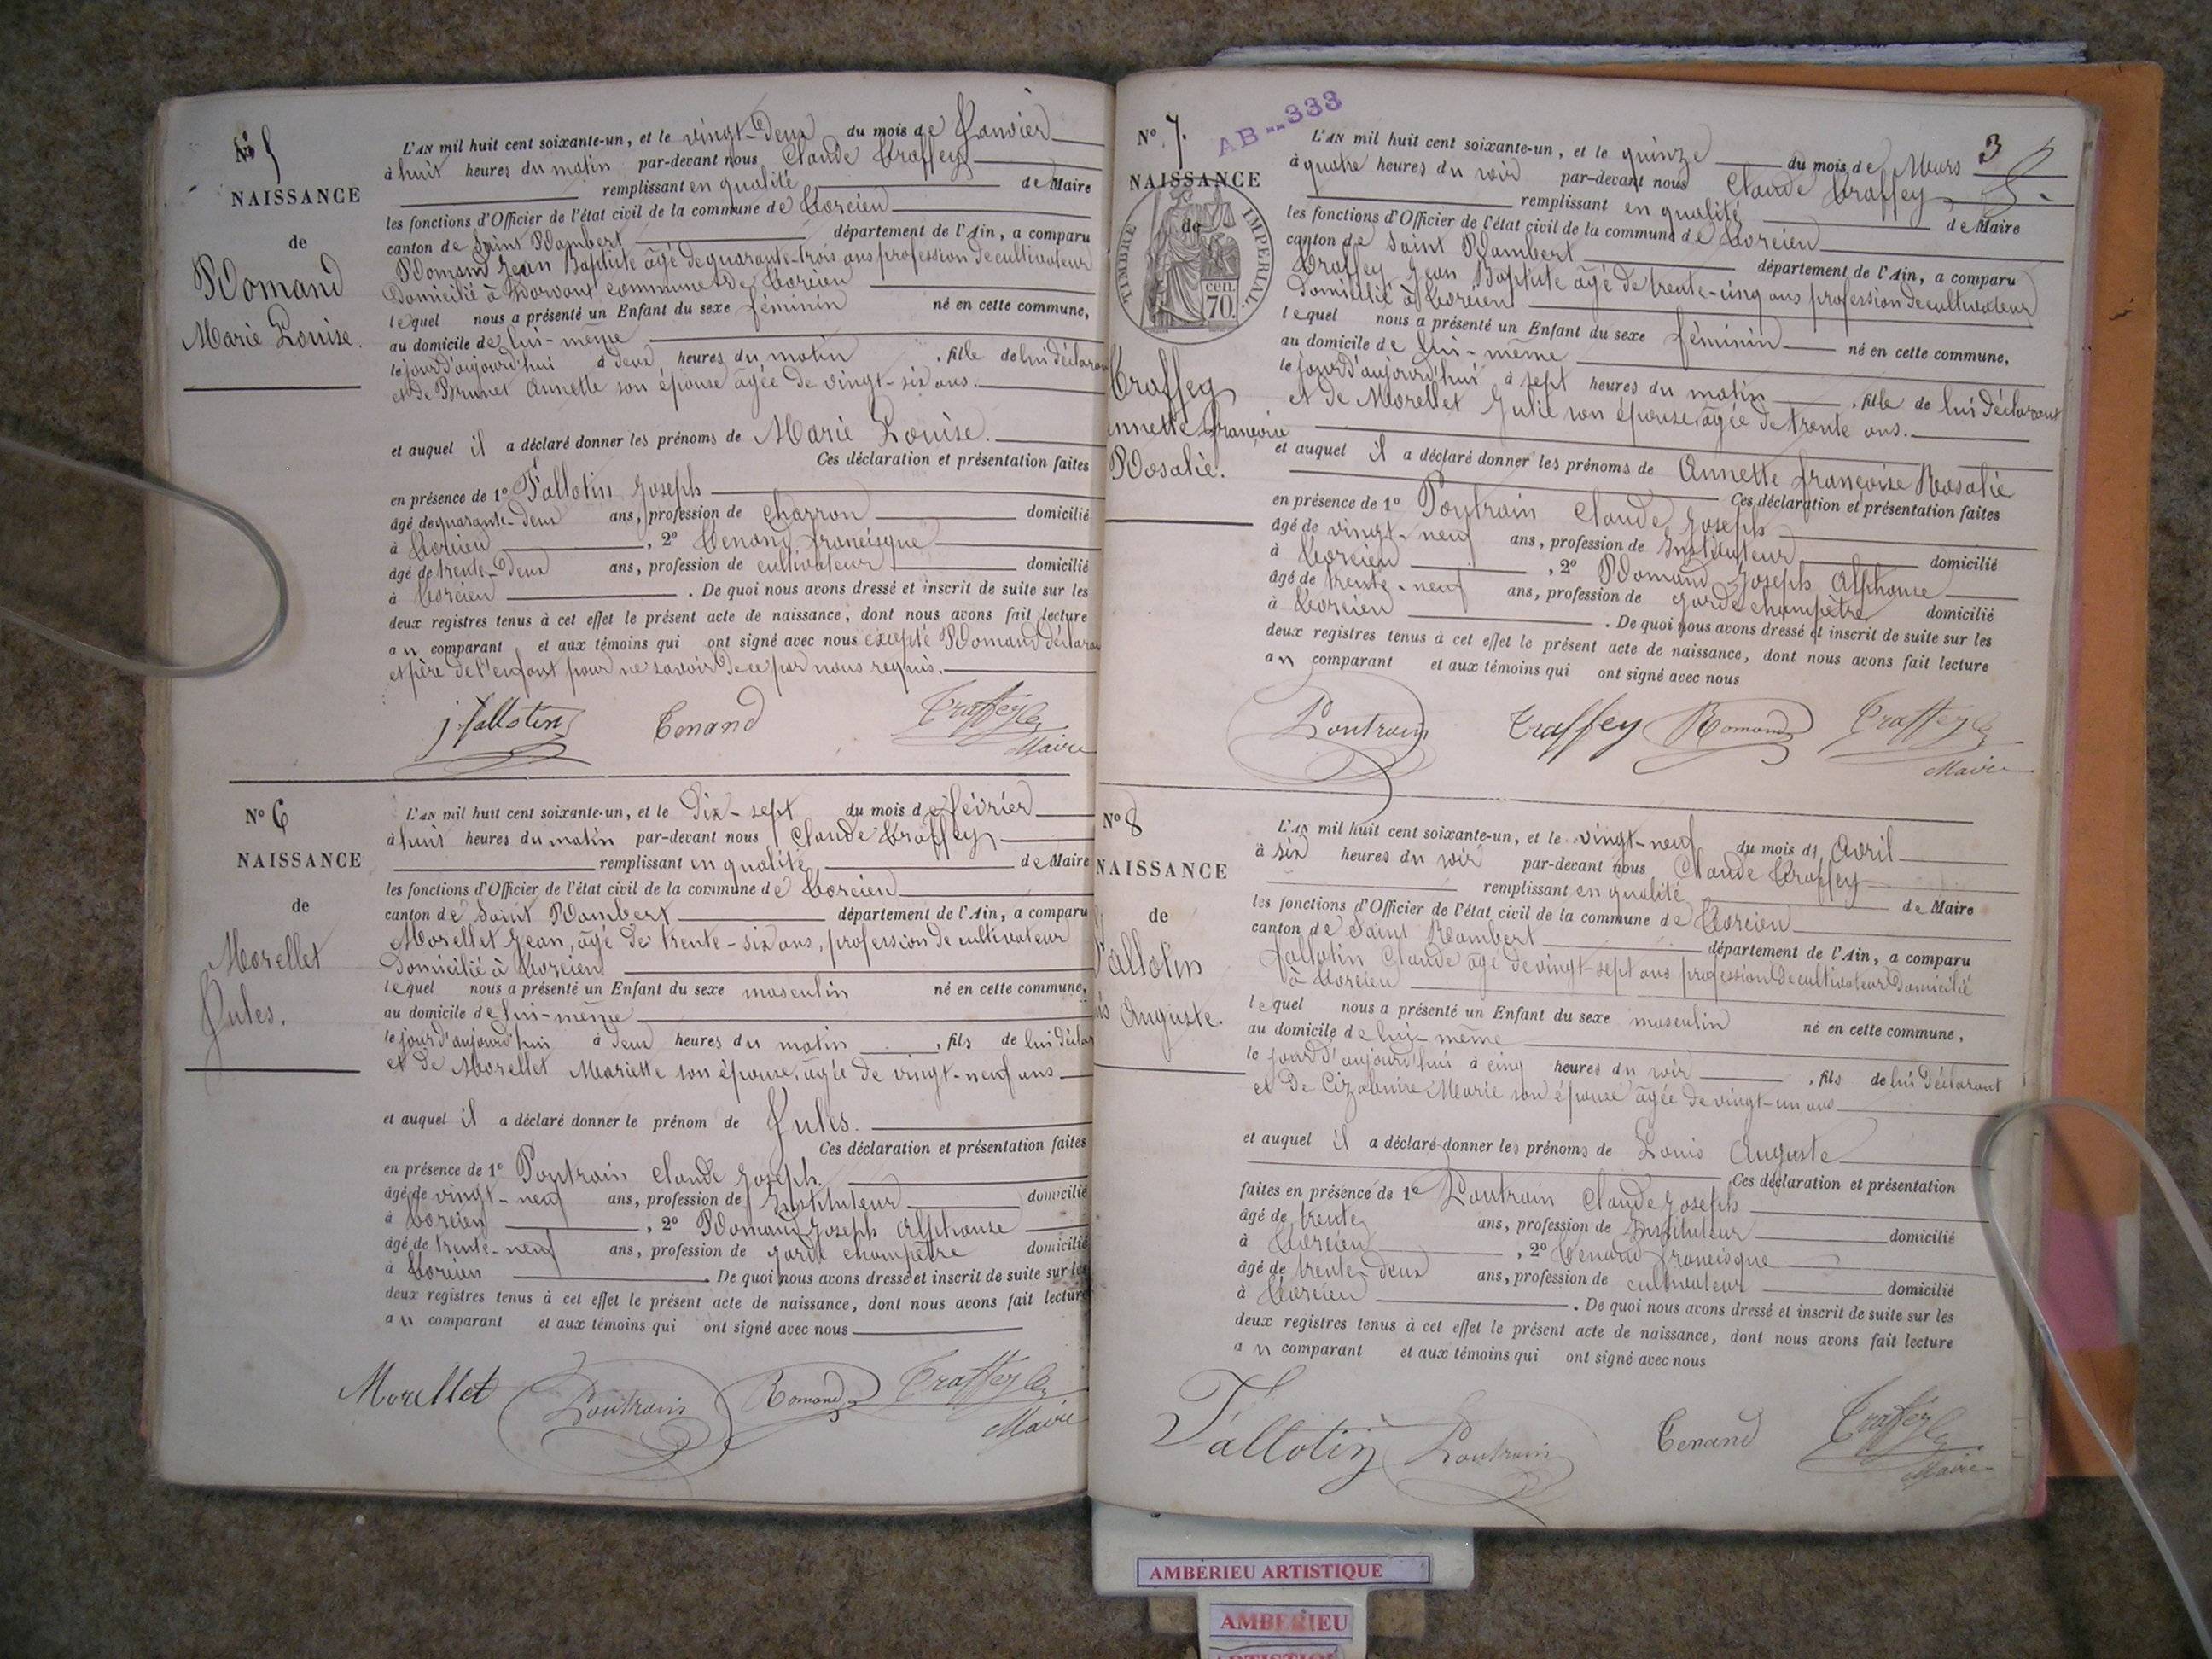 N° 5
NAISSANCE
de
Romand
Marie Louise.
L'AN mil huit cent soixante-un, et le vingt-deux du mois de Janvier
à huit heures du matin par-devant nous Claude Traffey
remplissant en qualité de Maire
les fonctions d'Officier de l'état civil de la commune de Torcieu
canton de Saint Rambert département de l'Ain, a comparu
Romand Jean Baptiste âgé de quarante-trois ans profession de cultivateur
domicilié à commune de Torcieu
lequel nous a présenté un Enfant du sexe féminin né en cette commune,
au domicile de lui-même
le jour d'aujourd'hui à deux heures du matin, fille de lui déclarant
et de Brunet Annette son épouse âgée de vingt-six ans.
et auquel il a déclaré donner les prénoms de Marie Louise.
Ces déclaration et présentation faites
en présence de 1° Tallotin Joseph
âgé de quarante-deux ans, profession de charron domicilié
à Torcieu, 2° Tenand Francisque
âgé de trente-deux ans, profession de cultivateur domicilié
à Torcieu. De quoi nous avons dressé et inscrit de suite sur les
deux registres tenus à cet effet le présent acte de naissance, dont nous avons fait lecture
au comparant et aux témoins qui ont signé avec nous excepté Romand déclarant
et père de l'enfant pour ne savoir de ce par nous requis.
j. tallotin Tenand Traffey Cde
Maire
N° 6
NAISSANCE
de
Morellet
Jules.
L'AN mil huit cent soixante-un, et le dix-sept du mois de février
à huit heures du matin par-devant nous Claude Traffey
remplissant en qualité de Maire
les fonctions d'Officier de l'état civil de la commune de Torcieu
canton de Saint Rambert département de l'Ain, a comparu
Morellet Jean, âgé de trente-six ans, profession de cultivateur
domicilié à Torcieu
lequel nous a présenté un Enfant du sexe masculin né en cette commune,
au domicile de lui-même
le jour d'aujourd'hui à deux heures du matin, fils de lui déclar
et de Morellet Mariette son épouse, âgée de vingt-neuf ans
et auquel il a déclaré donner le prénom de Jules.
Ces déclaration et présentation faites
en présence de 1° Poutrain Claude Joseph.
âgé de vingt-neuf ans, profession de Instituteur domicilié
à Torcieu, 2° Romand Joseph Alphonse
âgé de trente-neuf ans, profession de garde champêtre domicilié
à Torcieu. De quoi nous avons dressé et inscrit de suite sur les
deux registres tenus à cet effet le présent acte de naissance, dont nous avons fait lecture
au comparant et aux témoins qui ont signé avec nous
Morellet Poutrain Romand Traffey Cde
Maire
N° 7.
AB--333
3
NAISSANCE
de
TIMBRE IMPERIAL.
cen.
70.
Traffey
nnette Françoise
Rosalie.
L'AN mil huit cent soixante-un, et le quinze du mois de Mars
à quatre heures du soir par-devant nous Claude Traffey
remplissant en qualité de Maire
les fonctions d'Officier de l'état civil de la commune de Torcieu
canton de Saint Rambert département de l'Ain, a comparu
Traffey Jean Baptiste âgé de trente-cinq ans profession de cultivateur
domicilié à Torcieu
lequel nous a présenté un Enfant du sexe féminin né en cette commune,
au domicile de lui-même
le jour d'aujourd'hui à sept heures du matin, fille de lui déclarant
et de Morellet Julie son épouse, âgée de trente ans.
et auquel il a déclaré donner les prénoms de Annette françoise Rosalie
Ces déclaration et présentation faites
en présence de 1° Poutrain Claude Joseph
âgé de vingt-neuf ans, profession de Instituteur domicilié
à Torcieu, 2° Romand Joseph Alphonse
âgé de trente-neuf ans, profession de garde champêtre domicilié
à Torcieu. De quoi nous avons dressé et inscrit de suite sur les
deux registres tenus à cet effet le présent acte de naissance, dont nous avons fait lecture
au comparant et aux témoins qui ont signé avec nous
Poutrain Traffey Romand Traffey Cde
Maire
N° 8
NAISSANCE
de
Tallotin
is Auguste.
L'AN mil huit cent soixante-un, et le vingt-neuf du mois d' Avril
à six heures du soir par-devant nous Claude Traffey
remplissant en qualité de Maire
les fonctions d'Officier de l'état civil de la commune de Torcieu
canton de Saint Rambert département de l'Ain, a comparu
Tallotin Claude âgé de vingt-sept ans profession de cultivateur domicilié
à Torcieu
lequel nous a présenté un Enfant du sexe masculin né en cette commune,
au domicile de lui-même
le jour d'aujourd'hui à cinq heures du soir, fils de lui déclarant
et de Marie son épouse âgée de vingt-un ans
et auquel il a déclaré donner les prénoms de Louis Auguste
Ces déclaration et présentation
faites en présence de 1° Poutrain Claude Joseph
âgé de trente ans, profession de Instituteur domicilié
à Torcieu, 2° Tenand Francisque
âgé de trente-deux ans, profession de cultivateur domicilié
à Torcieu. De quoi nous avons dressé et inscrit de suite sur les
deux registres tenus à cet effet le présent acte de naissance, dont nous avons fait lecture
au comparant et aux témoins qui ont signé avec nous
Tallotin Poutrain Tenand Traffey Cde
Maire
AMBERIEU ARTISTIQUE
AMBERIEU
ARTISTIQUE